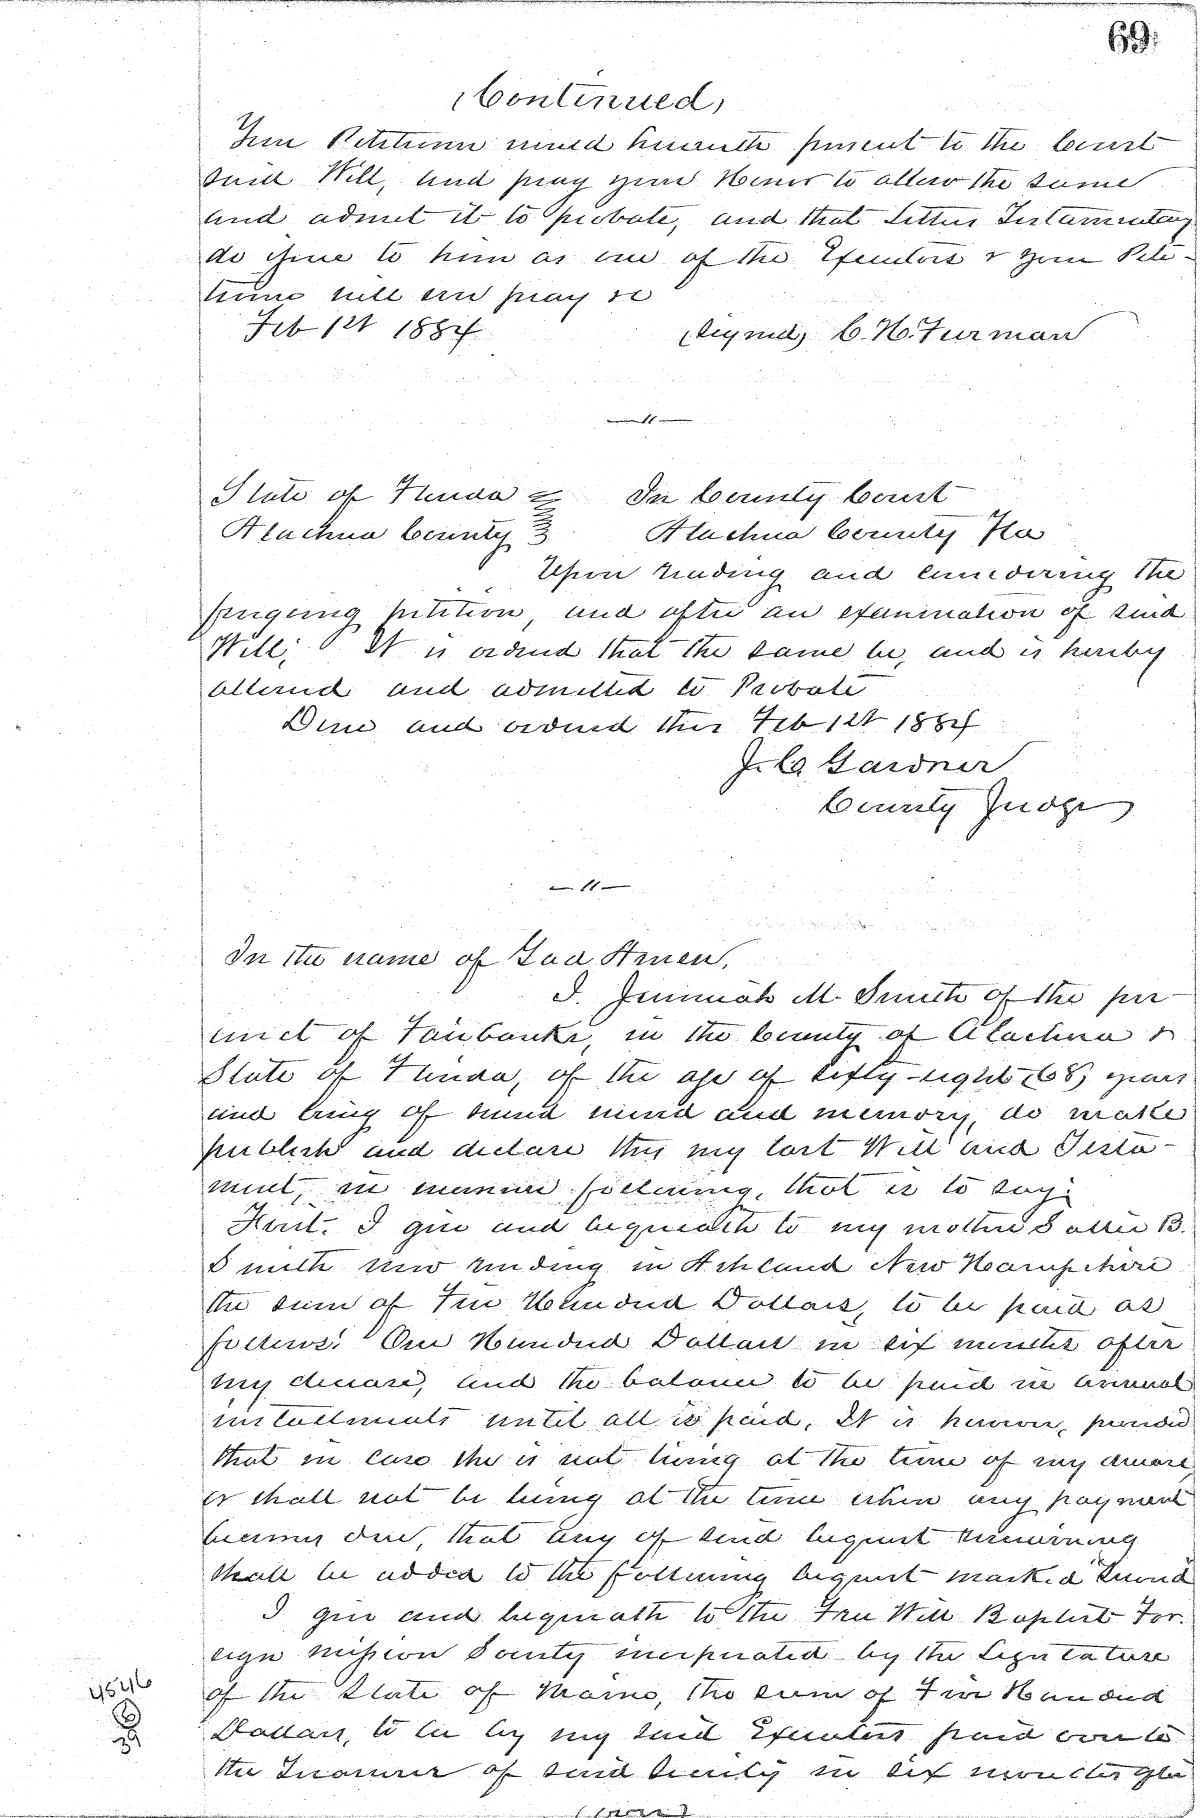 69
(Continued)
Your Petitioner would herewith present to the Court
said Will, and pray your Honor to allow the same
and admit it to probate, and that Letters Testamentary
do issue to him as one of the Executors & your Peti-
tioner will ever pray &c
Feb 1st 1884 (signed) C. H. Furman
State of Florida In County Court
Alachua County Alachua County Fla
Upon reading and considering the
foregoing petition, and after an examination of said
Will; It is ordered that the same be, and is hereby
allowed and admitted to Probate
Done and ordered this Feb 1st 1884
J. C. Gardner
County Judge
In the name of God Amen.
I. Jeremiah M. Smith of the pre-
cinct of Fairbanks, in the County of Alachua &
State of Florida, of the age of sixty-eight (68) years
and being of sound mind and memory, do make
publish and declare this my last Will and Testa-
ment, in manner following, that is to say:
First. I give and bequeath to my mother Sallie B.
Smith now residing in Ashland New Hampshire
the sum of Five Hundred Dollars, to be paid as
follows: One Hundred Dollars in six months after
my decease, and the balance to be paid in annual
installments until all is paid. It is however, provided
that in case she is not living at the time of my decease,
or shall not be living at the time when any payment
becomes due, that any of said bequest remaining
shall be added to the following bequest marked "Second"
I give and bequeath to the Free Will Baptist For-
eign mission Society incorporated by the Legislature
of the State of Maine, the sum of Five Hundred
Dollars, to be by my said Executors paid over to
the Treasurer of said Society in six months after
(over)
4546
6
39